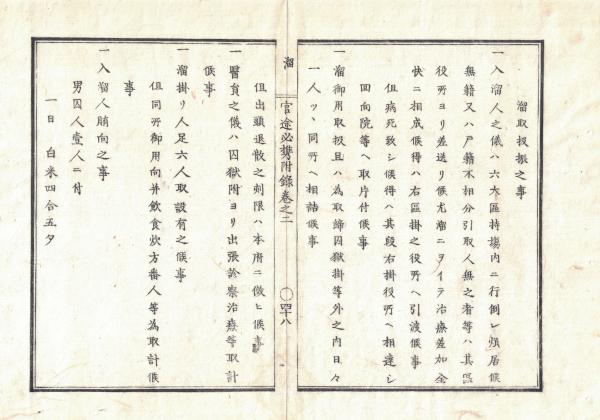 溜取扱振之事
一入溜人之儀ハ六大區持塲内ニ行倒レ煩居候
無籍又ハ戸籍不相分引取人無之者等ハ其區
役所ヨリ差送リ候尤溜ニヲイテ治療差加全
快ニ相成候得ハ右區掛之役所ヘ引渡候事
但病死致シ候得ハ其段右掛役所ヘ相達シ
回向院等ヘ取片付候事
一溜御用取扱且ハ為取締囚獄掛等外之内日々
一人ツヽ同所ヘ相詰候事
溜
官途必携附錄巻之二
〇四十八
但出頭退散之刻限ハ本所ニ倣ヒ候事
一醫負之儀ハ囚獄附ヨリ出張診察治療等取計
候事
一溜掛リ人足六人取設有之候事
但同所御用向并飲食炊方番人等為取計候
事
一入溜人賄向之事
男囚人壹人ニ付
一日 白米四合五夕